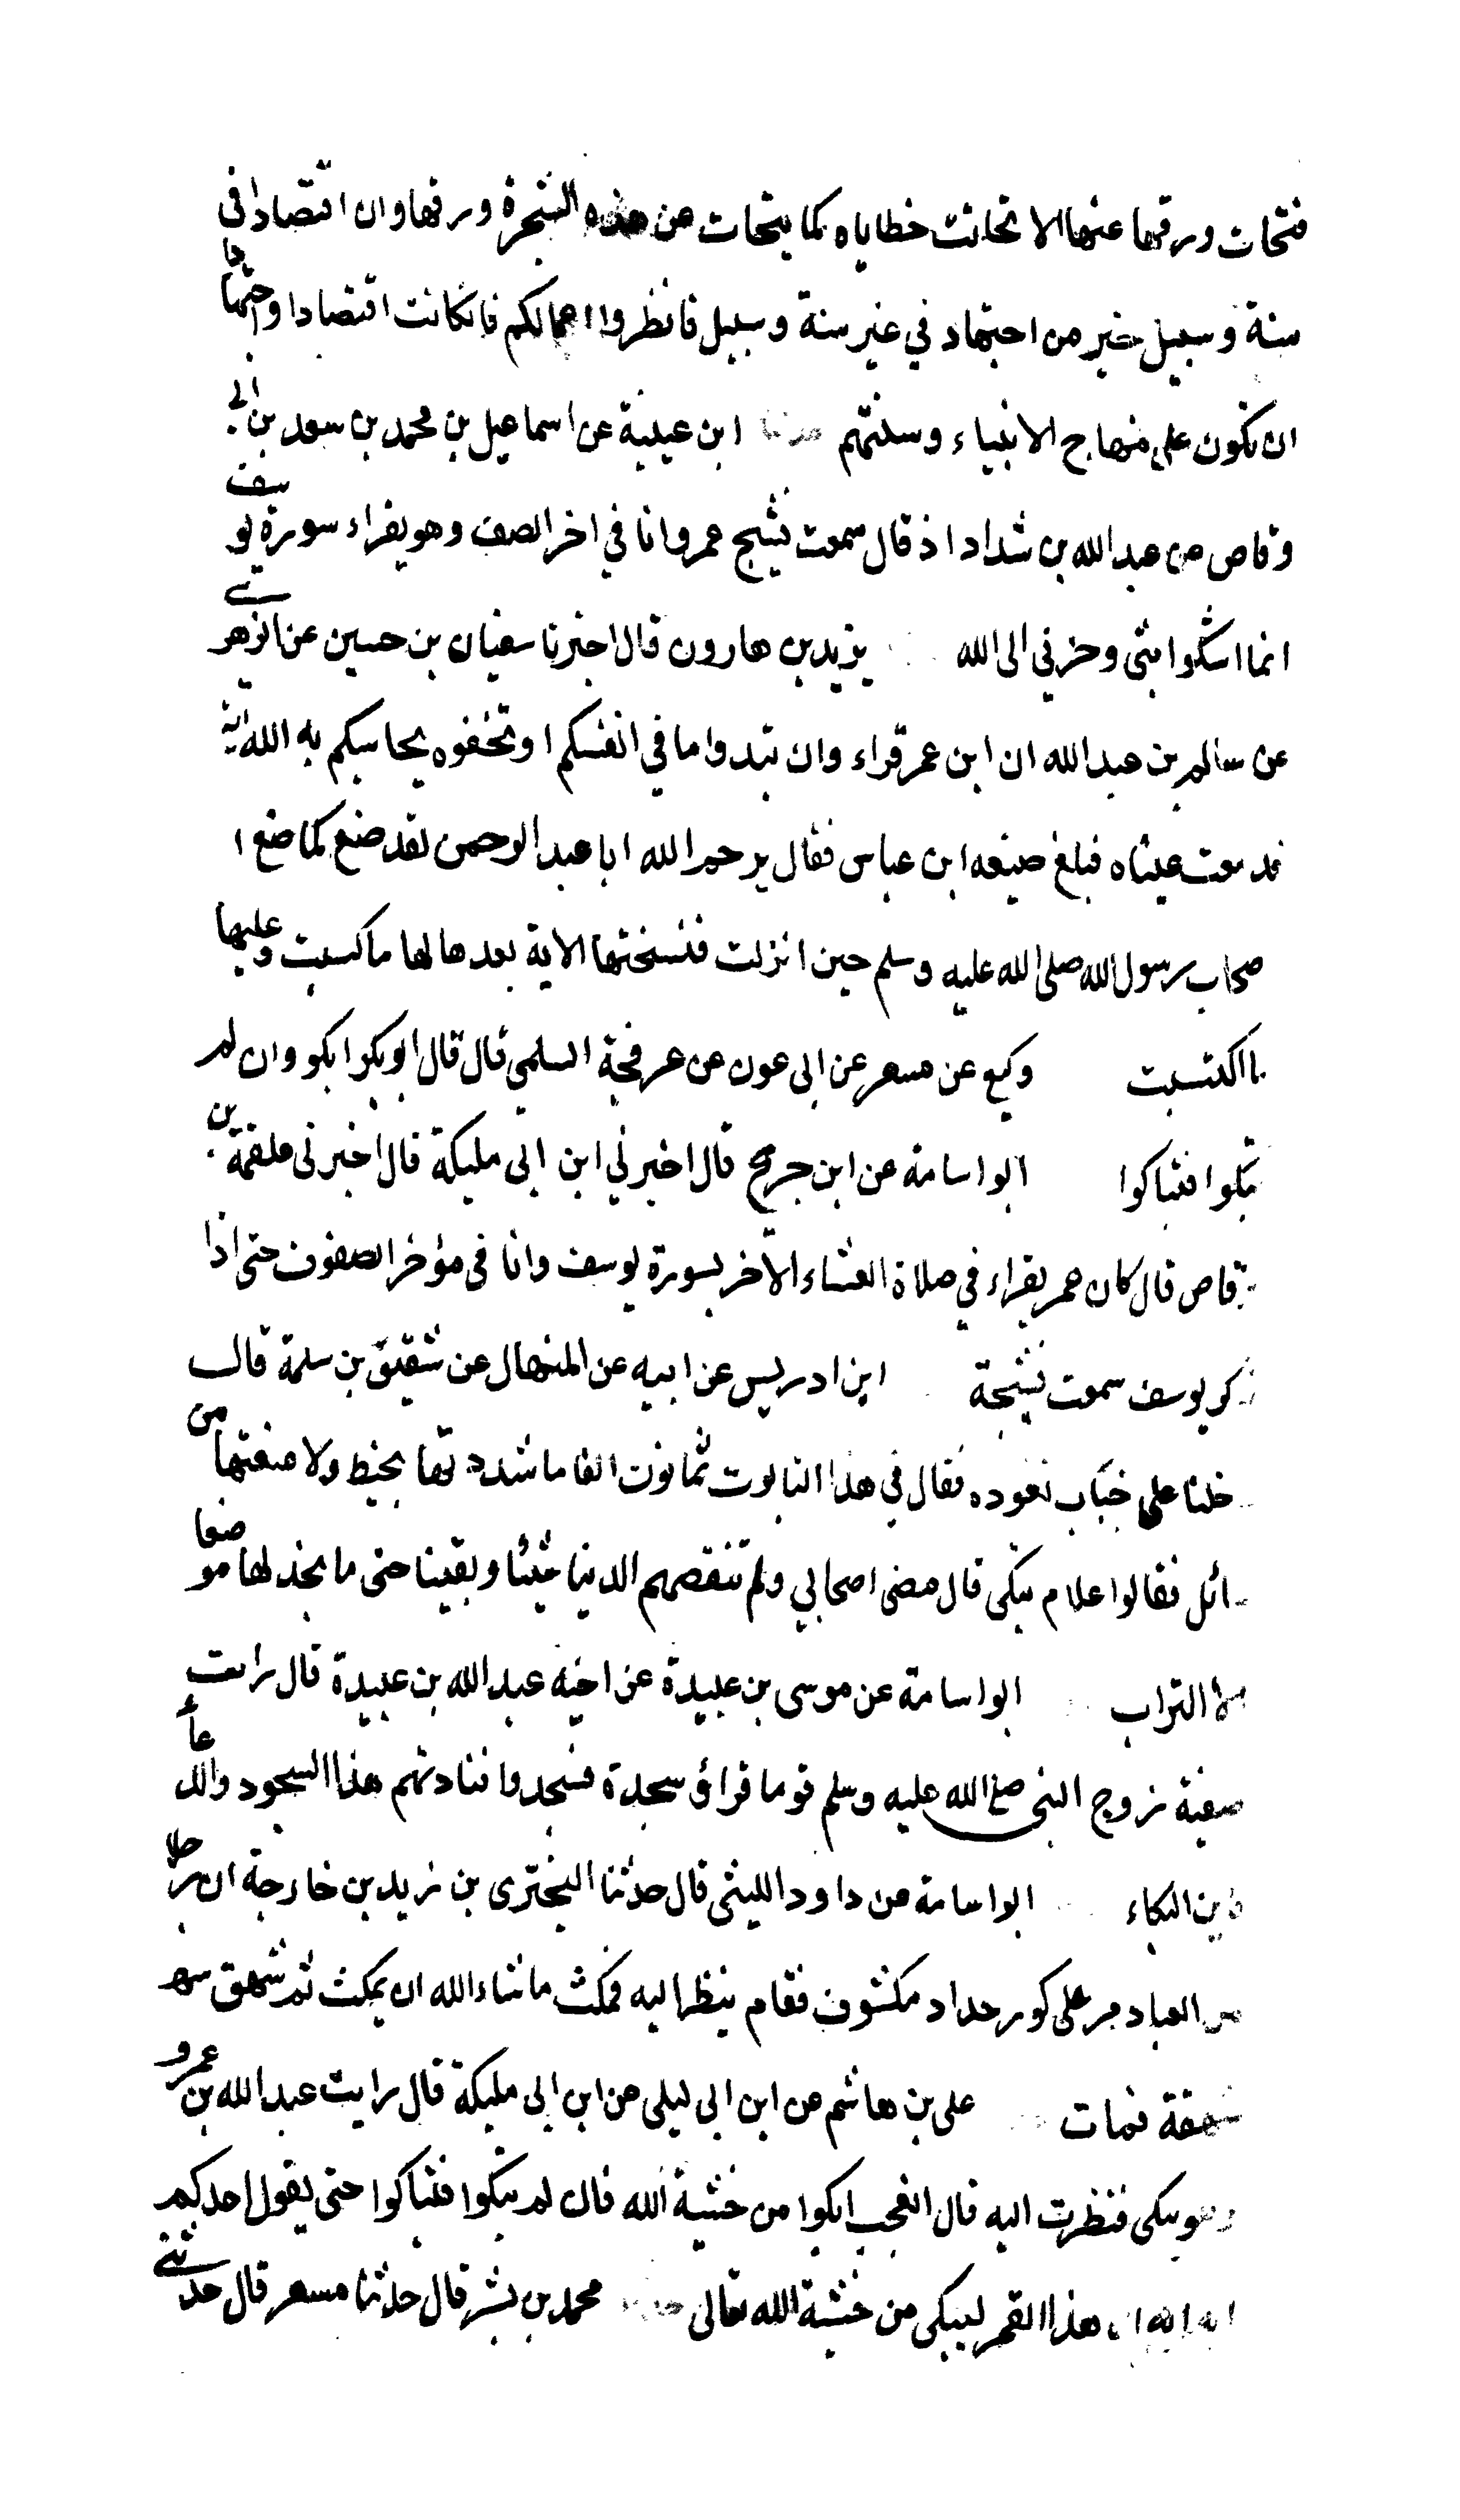 فتحات ورقها عنها الا تحاتت خطاياه كما يتحات من هذه الشجرة ورقها وان اقتصادا في
سنة وسبيل خير من اجتهاد في غير سنة وسبيل فانظروا اعمالكم فان كانت اقتصادا واجتهادا
ان تكون على منهاج الانبياء وسنتهم حدثنا ابن عيينة عن اسماعيل بن محمد بن سعد بن ابي
وقاص عن عبد الله بن شداد اذ قال سمعت نشيج عمر وانا في اخر الصف وهو يقراء سورة يوسف
انما اشكوا بثي وحزني الى الله يزيد بن هارون قال اخبرنا سفيان بن حسين عن الزهري
عن سالم بن عبد الله ان ابن عمر قراء وان تبدوا ما في انفسكم او تخفوه يحاسبكم به الله الآية
فدمعت عيناه فبلغ صنيعه ابن عباس فقال يرحم الله ابا عبد الرحمن لقد صنع كما صنع ا
صحاب رسول الله صلى الله عليه وسلم حين انزلت فنسختها الاية بعدها لها ما كسبت وعليها
ما اكتسبت وكيع عن مسعر عن ابى عون عن عرفجة السلمي قال قال ابو بكر ابكو وان لم
تبكوا فتباكوا ابو اسامة عن ابن جريج قال اخبرني ابن ابي مليكة قال اخبرنى علقمة بن
وقاص قال كان عمر يقراء في صلاة العشاء الآخر بسورة يوسف وانا في مؤخر الصفوف حتى اذا
ذكر يوسف سمعت نشيجة ابن ادريس عن ابيه عن المنهال عن شقيق بن سلمة قال
دخلنا على خباب نعوده فقال في هذا التابوت ثمانون الفا ما شددتها بخيط ولا منعتها من
سائل فقالوا علام تبكي قال مضى اصحابي ولم تنقصهم الدنيا شيئا وبقينا حتى ما نجد لها موضعا
الا التراب ابو اسامة عن موسى بن عبيدة عن اخيه عبد الله بن عبيدة قال رات
صفية زوج النبي صلى الله عليه وسلم قوما قراؤ سجدة فسجدوا فنادتهم هذا السجود والدعأ
فاين البكاء ابو اسامة عن داود الليثي قال حدثنا البختري بن زيد بن خارجة ان رجلا
من العباد مر على كور حداد مكشوف فقام ينظر اليه فمكث ما شاء الله ان يمكث ثم شهق سهـ
شهقة فمات على بن هاشم عن ابن ابي ليلى عن ابن ابي مليكة قال رايت عبد الله بن عمرو
وهو يبكى فنظرت اليه قال اتعجب ابكوا من خشية الله فان لم تبكوا فتباكوا حتى يقول احدكم
ايه ايه ان هذا القمر ليبكي من خشية الله تعالى حدثنا محمد بن بشر قال حدثنا مسعر قال حدثني